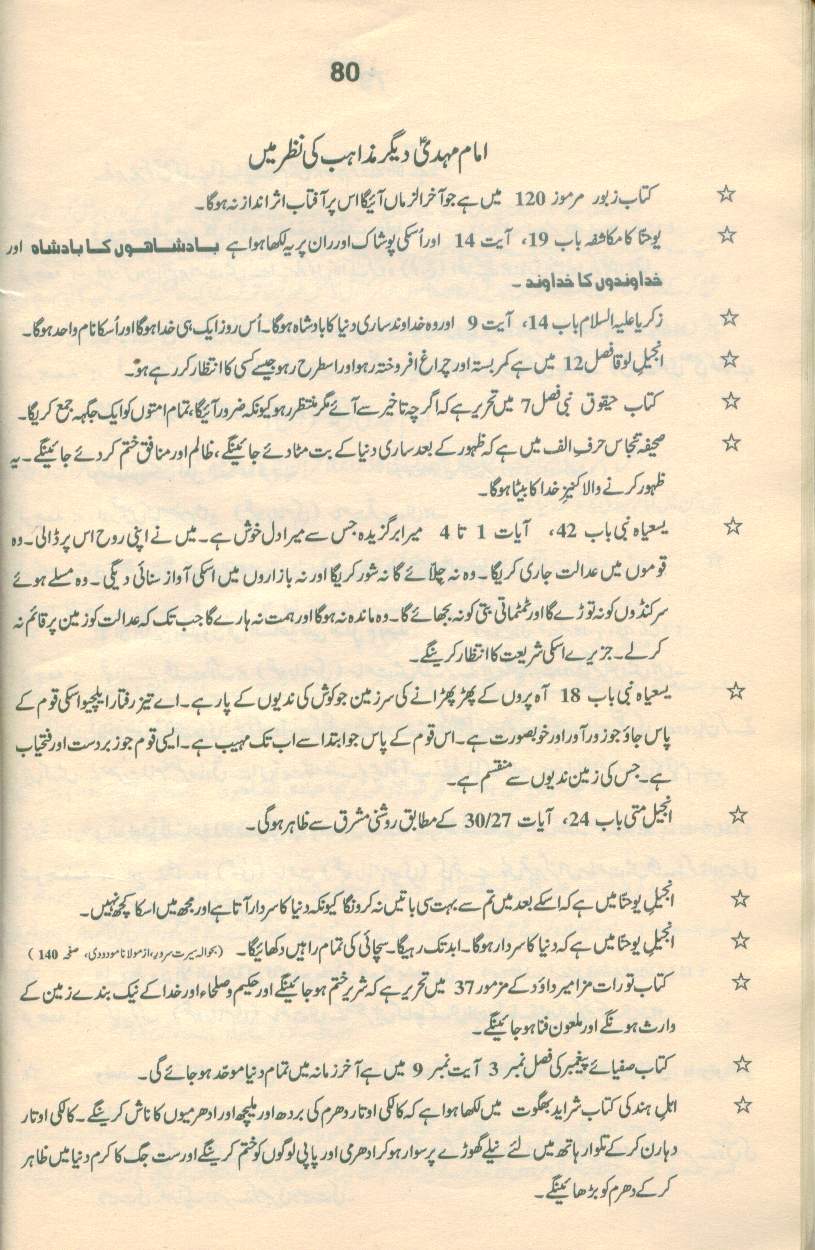 80
امام مہدیؑ دیگر مذاہب کی نظر میں
☆ کتاب زبور مرموز 120 میں ہے جو آخر الزماں آئیگا اس پر آفتاب اثر انداز نہ ہوگا۔
☆ یوحنّا کا مکاشفہ باب 19، آیت 14 اور اُسکی پوشاک اور ران پر یہ لکھا ہوا ہے بادشاہوں کا بادشاہ اور
خداوندوں کا خداوند ۔
☆ زکریا علیہ السلام باب 14، آیت 9 اور وہ خداوند ساری دنیا کا بادشاہ ہوگا۔ اُس روز ایک ہی خدا ہوگا اور اُسکا نام واحد ہوگا۔
☆ انجیلِ لوقا فصل 12 میں ہے کمر بستہ اور چراغ افروختہ رہو اور اسطرح رہو جیسے کسی کا انتظار کر رہے ہو۔
☆ کتاب حیقوق نبی فصل 7 میں تحریر ہے کہ اگرچہ تاخیر سے آئے مگر منتظر رہو کیونکہ ضرور آئیگا، تمام امتوں کو ایک جگہہ جمع کریگا۔
☆ صحیفہ تنجاس حرفِ الف میں ہے کہ ظہور کے بعد ساری دنیا کے بت مٹا دئے جائینگے، ظالم اور منافق ختم کر دئے جائینگے۔ یہ
ظہور کرنے والا کنیزِ خدا کا بیٹا ہوگا۔
☆ یسعیاہ نبی باب 42، آیات 1 تا 4 میرا برگزیدہ جس سے میرا دل خوش ہے۔ میں نے اپنی روح اس پر ڈالی۔ وہ
قوموں میں عدالت جاری کریگا۔ وہ نہ چلّائے گا نہ شور کریگا اور نہ بازاروں میں اسکی آواز سنائی دیگی۔ وہ مسلے ہوئے
سرکنڈوں کو نہ توڑے گا اور ٹمٹماتی بتی کو نہ بجھائے گا۔ وہ ماندہ نہ ہوگا اور ہمت نہ ہارے گا جب تک کہ عدالت کو زمین پر قائم نہ
کرلے۔ جزیرے اسکی شریعت کا انتظار کرینگے۔
☆ یسعیاہ نبی باب 18 آہ پروں کے پھڑپھڑانے کی سرزمین جو کوش کی ندیوں کے پار ہے۔ اے تیز رفتار ایلچیو اسکی قوم کے
پاس جاؤ جو زور آور اور خوبصورت ہے۔ اس قوم کے پاس جو ابتدا سے اب تک مہیب ہے۔ ایسی قوم جو زبردست اور فتحیاب
ہے۔ جس کی زمین ندیوں سے منقسم ہے۔
☆ انجیل متی باب 24، آیات 30/27 کے مطابق روشنی مشرق سے ظاہر ہوگی۔
☆ انجیلِ یوحنّا میں ہے کہ اسکے بعد میں تم سے بہت سی باتیں نہ کرونگا کیونکہ دنیا کا سردار آتا ہے اور مجھ میں اسکا کچھ نہیں۔
☆ انجیلِ یوحنّا میں ہے کہ دنیا کا سردار ہوگا۔ ابد تک رہیگا۔ سچائی کی تمام راہیں دکھائیگا۔ (بحوالہ سیرت سرور، از مولانا مودودی، صفحہ 140)
☆ کتاب تورات مزامیر داؤد کے مزمور 37 میں تحریر ہے کہ شریر ختم ہو جائینگے اور حکیم و صلحاء اور خدا کے نیک بندے زمین کے
وارث ہونگے اور ملعون فنا ہو جائینگے۔
☆ کتاب صفیائے پیغمبر کی فصل نمبر 3 آیت نمبر 9 میں ہے آخر زمانہ میں تمام دنیا موحّد ہو جائے گی۔
☆ اہلِ ہند کی کتاب شراید بھگوت میں لکھا ہوا ہے کہ کالکی اوتار دھرم کی بردھ اور ملیچھ اور ادھرمیوں کا ناش کرینگے۔ کالکی اوتار
دہارن کر کے تلوار ہاتھ میں لئے نیلے گھوڑے پر سوار ہو کر ادھرمی اور پاپی لوگوں کو ختم کرینگے اور ست جگ کا کرم دنیا میں ظاہر
کر کے دھرم کو بڑھائینگے۔